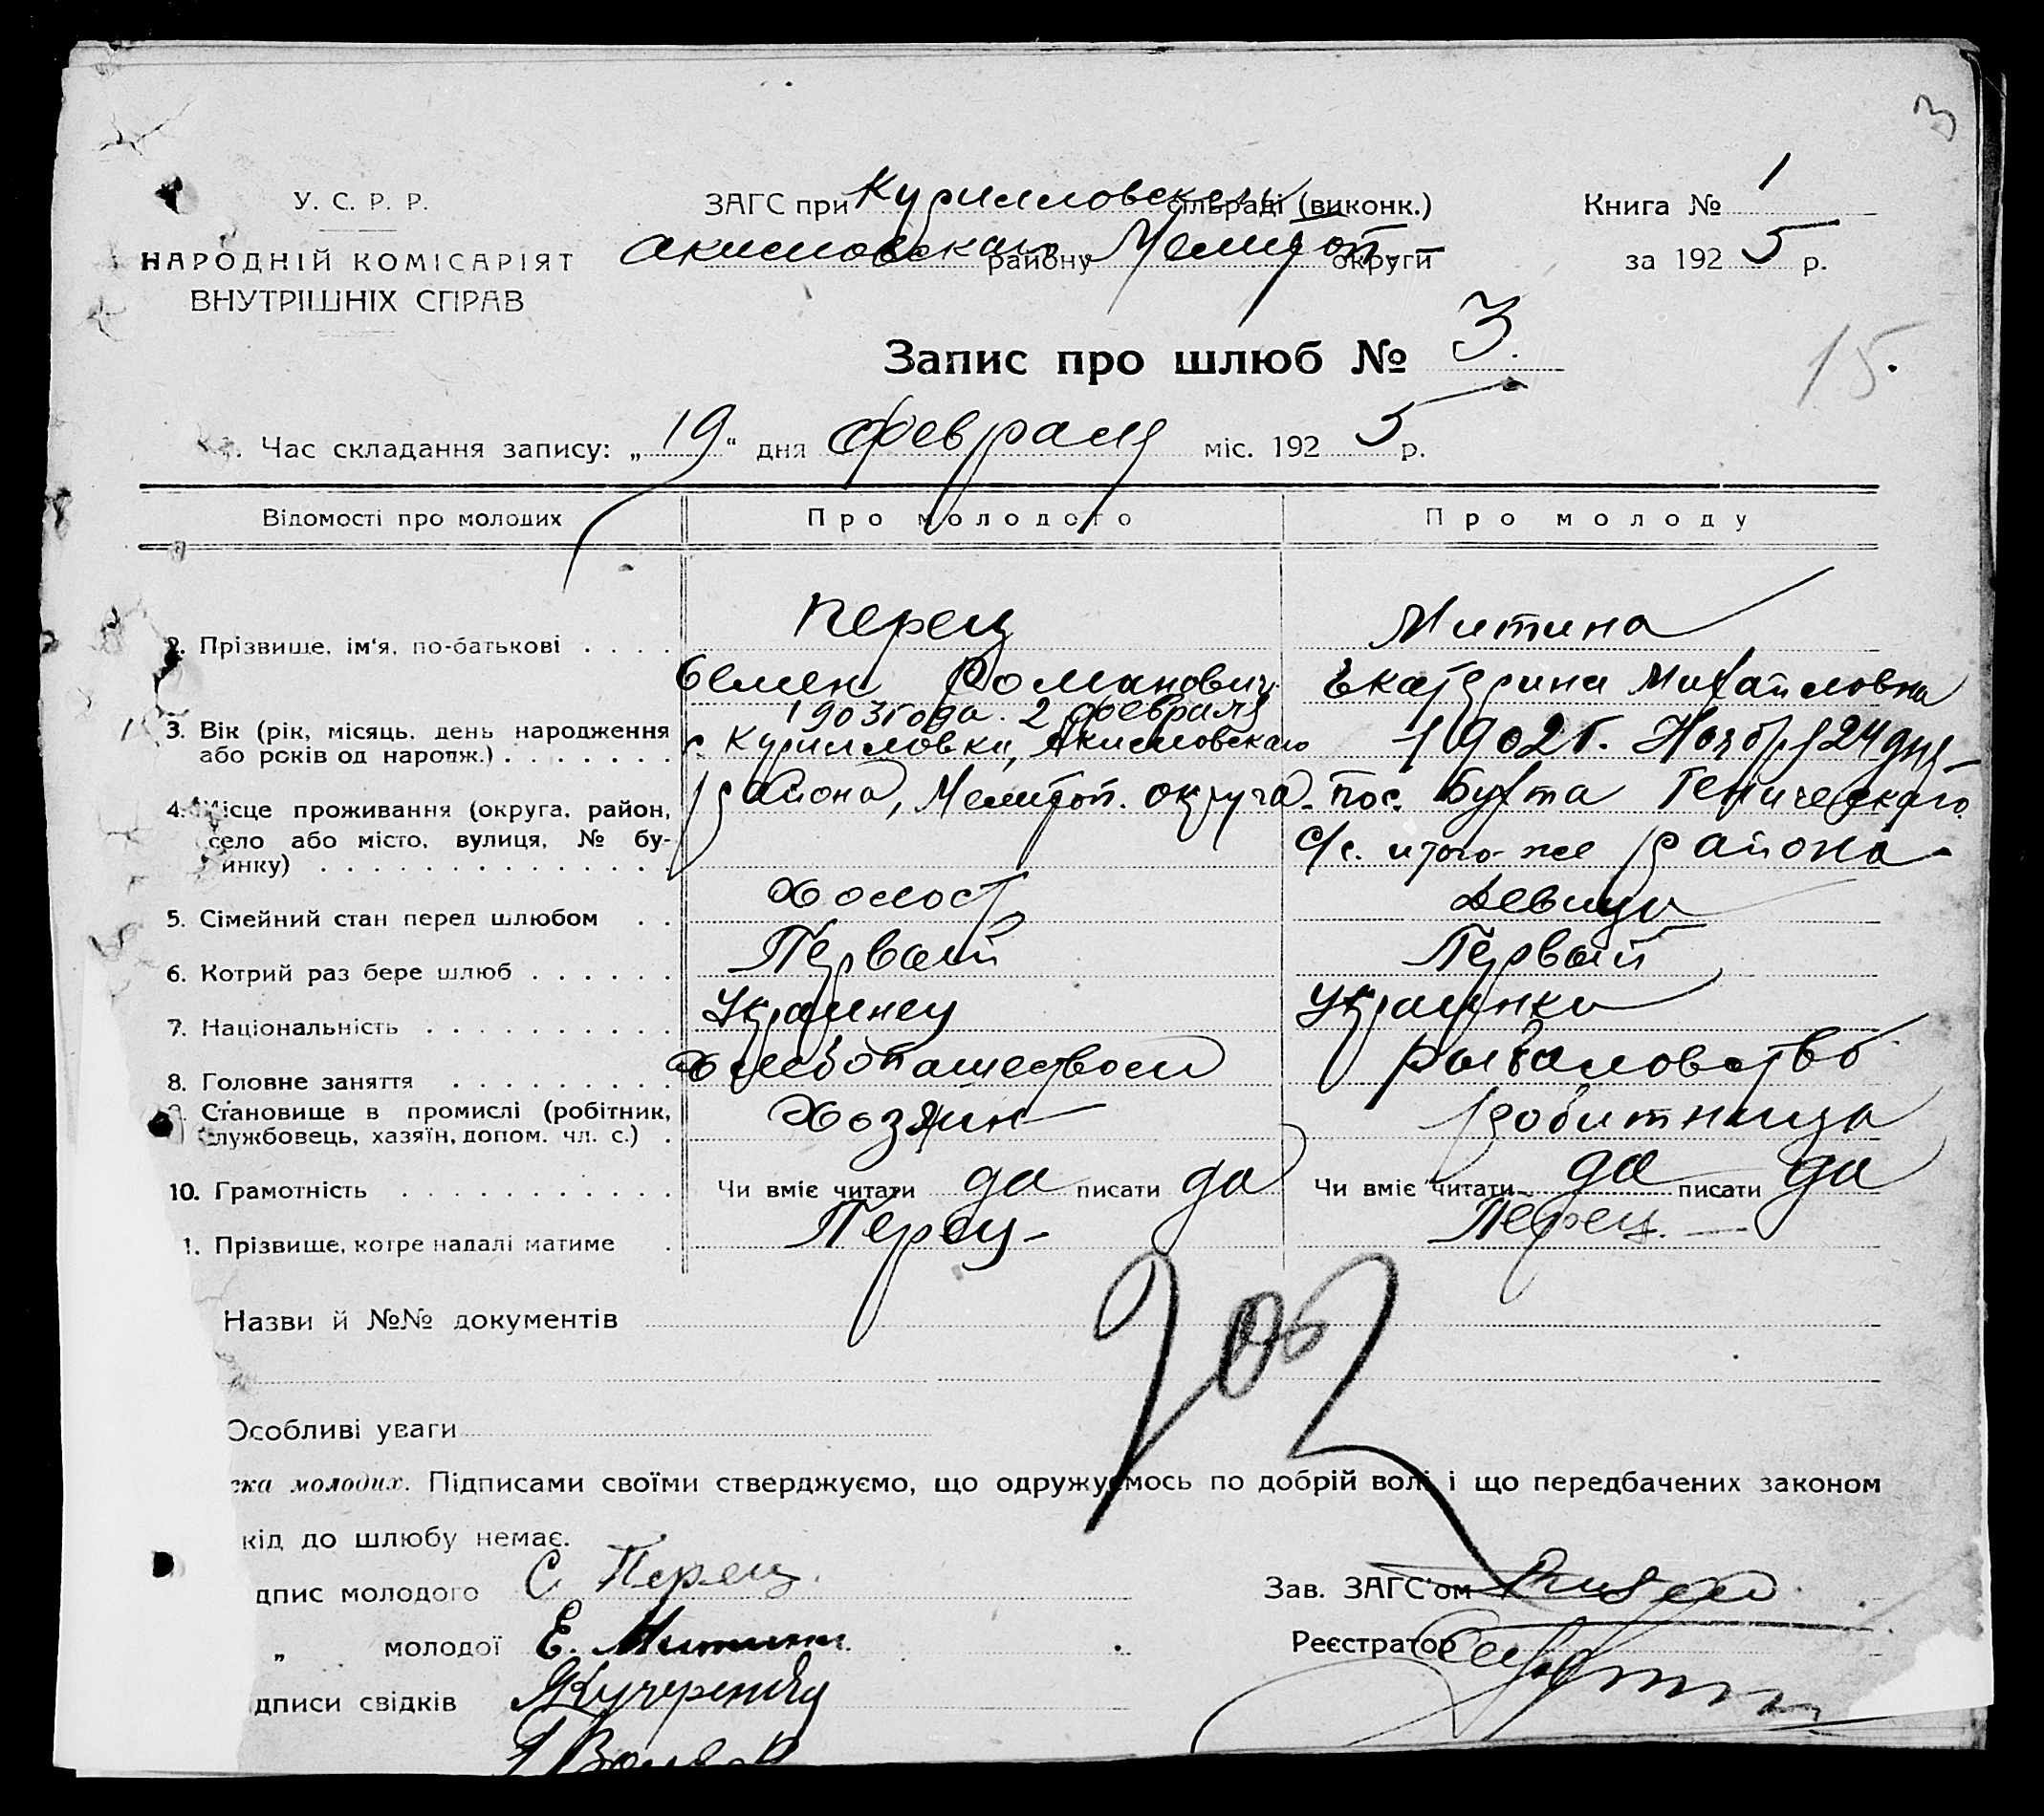 3
У. С. Р. Р.
НАРОДНІЙ КОМІСАРІЯТ
ВНУТРІШНІХ СПРАВ
ЗАГС при Курилловском сільраді (виконк.)
Акимовскаго району Мелитоп. округи
Книга № 1
за 1925 р.
Запис про шлюб № 3.
15.
Час складання запису: „19“ дня февраля міс. 1925 р.
Відомості про молодих Про молодого Про молоду
2. Прізвище, ім'я, по-батькові . . . . Перец Митина
Семен Романович Екатерина Михайловна
1903 года. 2 февраля
3. Вік (рік, місяць, день народження с. Курилловки, Акимовскаго 1902 г. Ноября 24 дня
або років од народж.) . . . . . . .
района, Мелитоп. округа. пос. Бухта Генического
4. Місце проживання (округа, район,
село або місто, вулиця, № бу- с/с. итого-же района
инку) . . . . . . . . . . . . .
5. Сімейний стан перед шлюбом . . Холост Девица
6. Котрий раз бере шлюб . . . . . . Первый Первый
7. Національність . . . . . . . . . . Украинец Украинка
8. Головне заняття . . . . . . . . . Хлебопашеством Рыбаловство
9. Становище в промислі (робітник, Хозяин робитница
службовець, хазяїн, допом. чл. с.) .
10. Грамотність . . . . . . . . . . . Чи вміє читати да писати да Чи вміє читати да писати да
1. Прізвище, котре надалі матиме . Перец Перец.
Назви й №№ документів
202
Особливі уваги
ска молодих. Підписами своїми стверджуємо, що одружуємось по добрій волі і що передбачених законом
кід до шлюбу немає.
дпис молодого С Перец.
Зав. ЗАГС'ом
„ молодої Е. Митина.
Реєстратор
дписи свідків